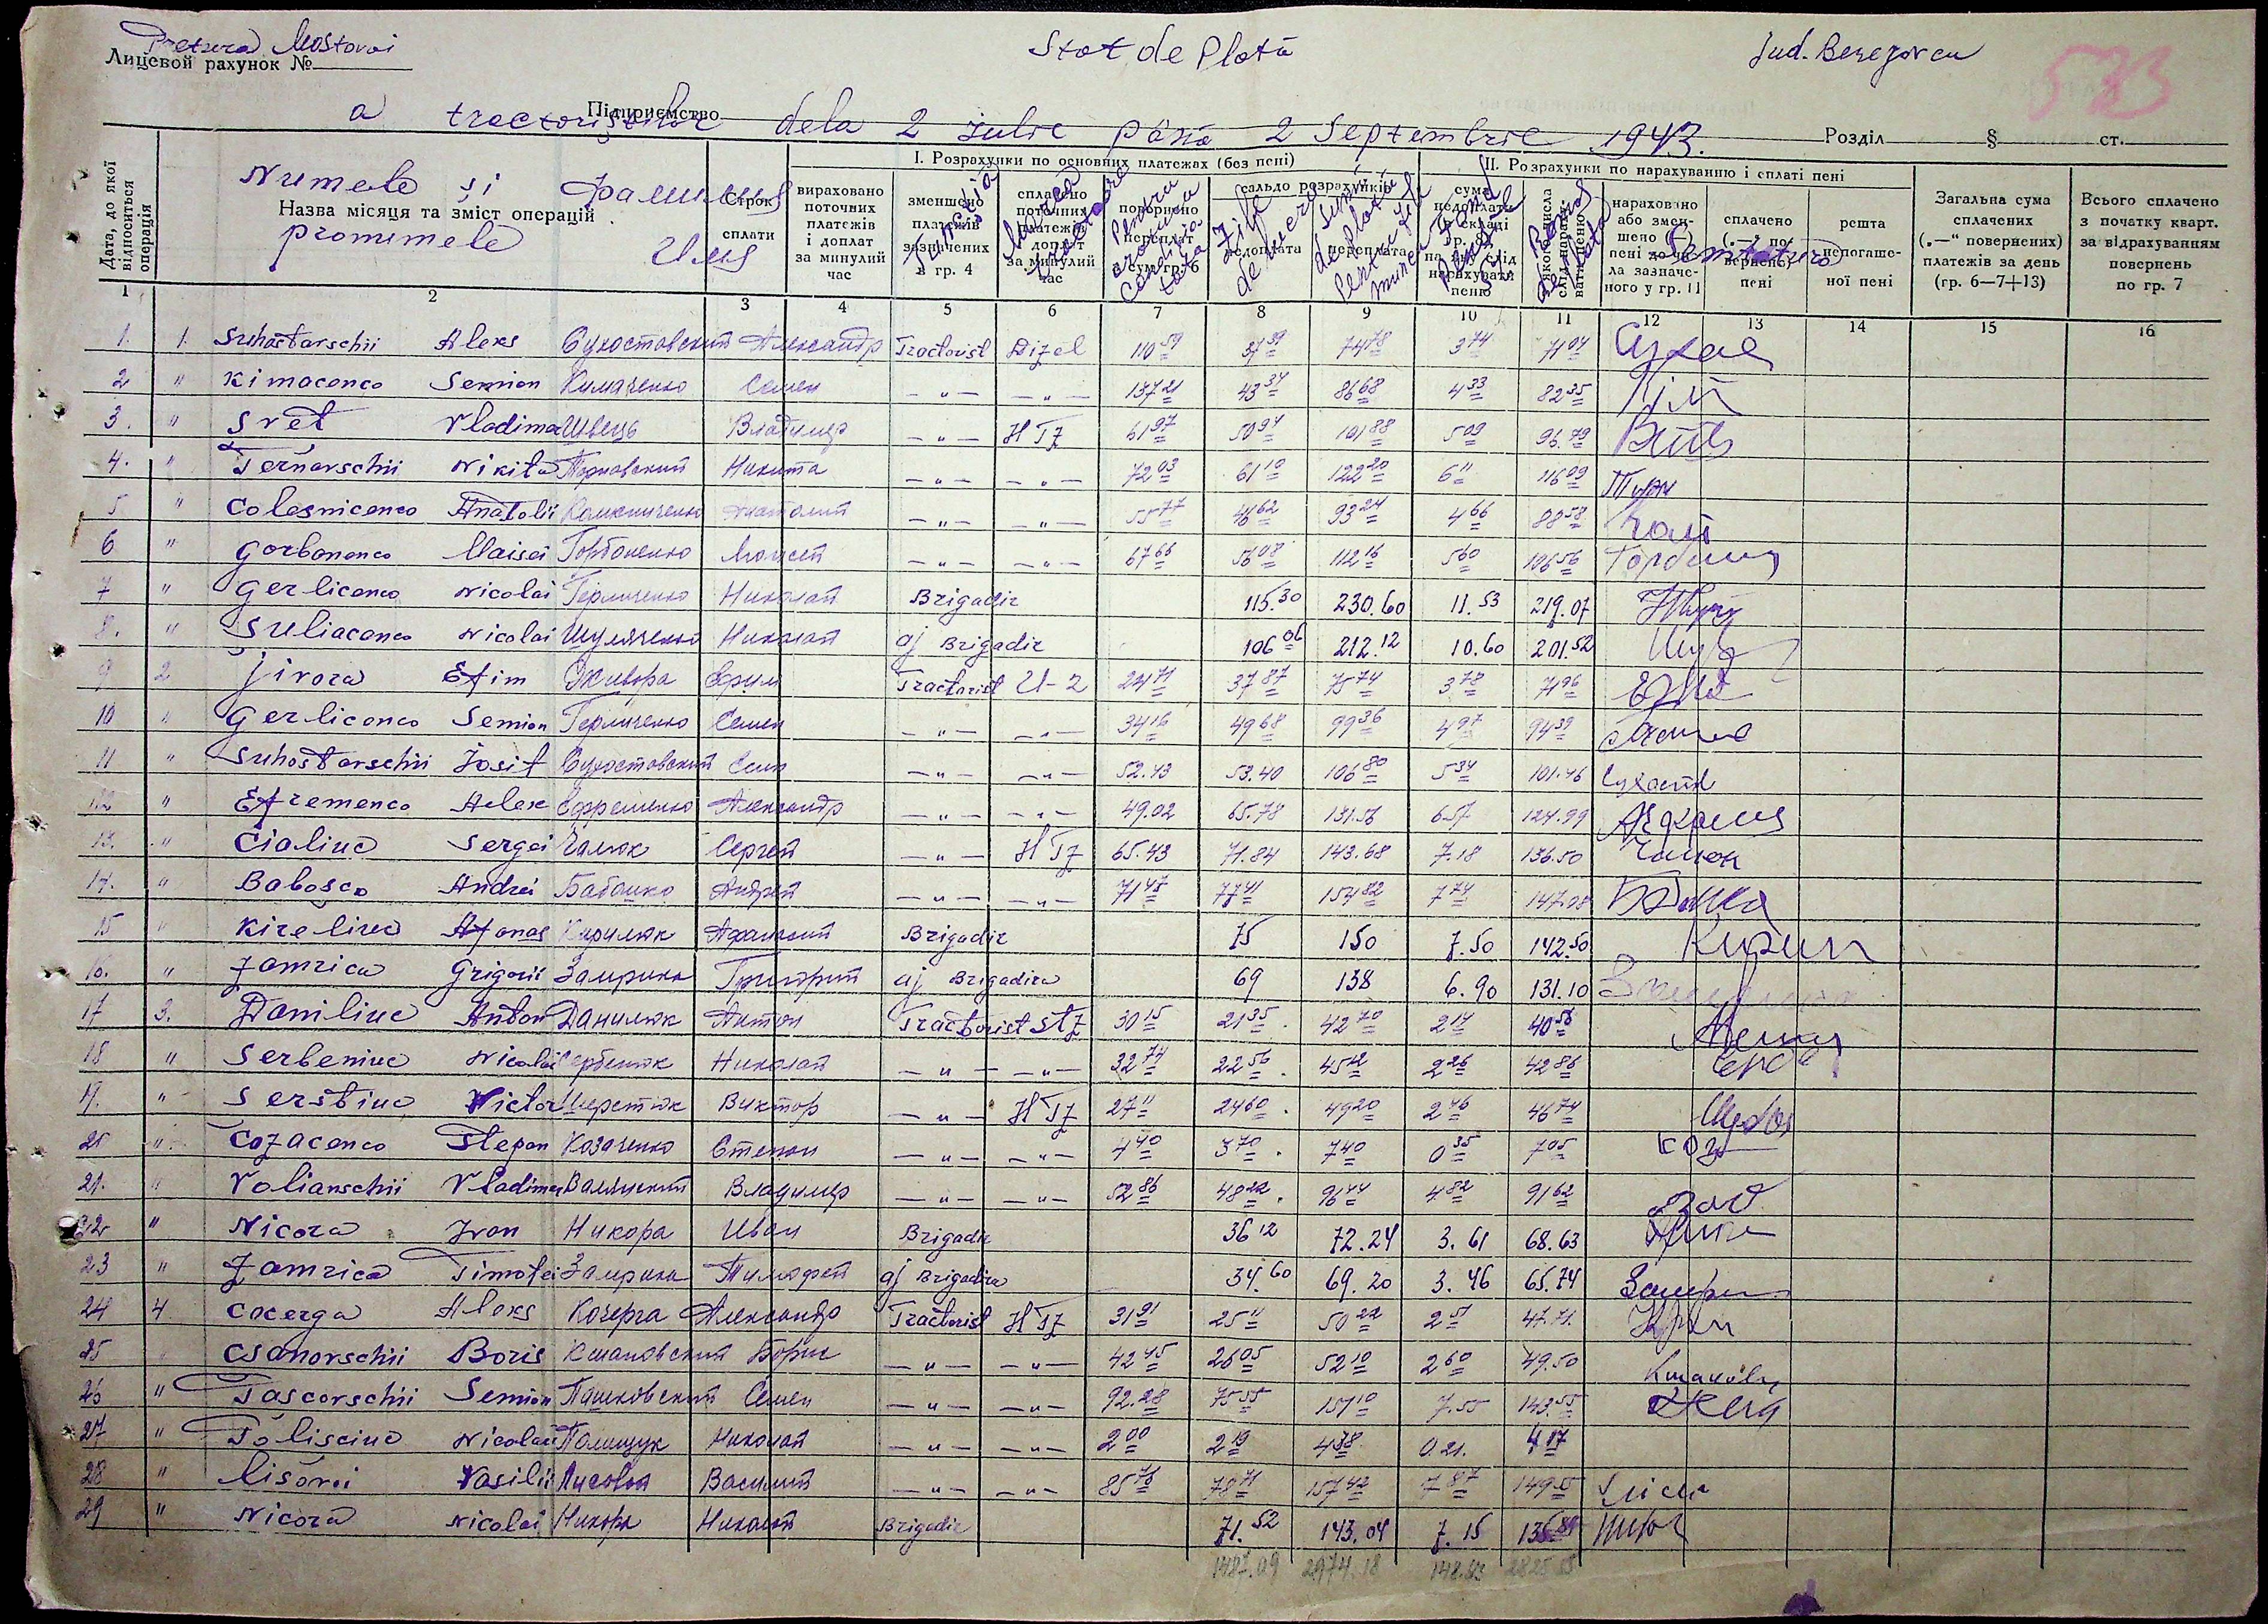 Pretura Mostovoi
Stat de Plată
Jud. Berezovca
533
Лицевой рахунок №
Підприємство
a tractoriștilor dela 2 Iulie până 2 Septembrie 1943.
Розділ § ст.
Дата, до якої відноситься операція
Numele și Фамилия
Назва місяця та зміст операцій
pronumele Имя
Строк сплати
I. Розрахунки по основних платежах (без пені)
вираховано поточних платежів і доплат за минулий час
зменшено платежів зазначених в гр. 4
Funcția
сплачено поточних платежів доплат за минулий час
Marca
повернено переплат сум гр. 6
Pentru
сальдо розрахунків
недоплата
Zile de lucru
переплата
Suma de plată pentru zile munca
II. Розрахунки по нарахуванню і сплаті пені
сума недоплати
нараховувати пеню
нараховано або змен-шено (—) пені до чис-ла зазначе-ного у гр. 11
сплачено („—“ по-вернено) пені
решта непогаше-ної пені
Semnatura
Загальна сума сплачених („—“ повернених) платежів за день (гр. 6—7+13)
Всього сплачено з початку кварт. за відрахуванням повернень по гр. 7
1 2 3 4 5 6 7 8 9 10 11 12 13 14 15 16
1. 1. Suhostavschii Alexs Сухоставский Александр Tractorist Dizel 110 59 37 39 74 78 3 74 71 04
2. " Kimaconco Semion Кимаченко Семен —"— —"— 137 21 43 34 86 68 4 33 82 35
3. " Sveț Vladimir Швець Владимир —"— Н TZ 61 97 50 94 101 88 5 09 96.79
4. " Ternovschii Nikita Терновский Никита —"— —"— 72 03 61 10 122 20 6 11 116 09
5 " Colesniconco Anatolii Колесниченко Анатолий —"— —"— 55 77 46 62 93 24 4 66 88 58
6 " Gorbononco Moisei Горбоненко Моисей —"— —"— 67 66 56 08 112 16 5 60 106 56
7 " Gerliconco Nicolai Герличенко Николай Brigadir 115.30 230.60 11.53 219.07
8. " Șuliaconco Nicolai Шуляченко Николай aj Brigadir 106 06 212.12 10.60 201.52
9 2 Jivora Efim Живора Ефим Tractorist U-2 24 71 37 87 75 74 3 78 71 96
10 " Gerliconco Semion Герличенко Семен —"— —"— 34 16 49 68 99 36 4 97 94 39
11 " Suhostavschii Josif Сухоставский —"— —"— 52.43 53.40 106 80 5 34 101.46
12 " Efremenco Alexe Ефременко Александр —"— —"— 49.02 65.78 131.56 6.57 124.99
13. " Cialiuc Sergei Чалюк Сергей —"— Н TZ 65.43 71.84 143.68 7.18 136.50 Чалюк
14. " Baboșco Andrei Бабошко Андрей —"— —"— 71 47 77 41 154 82 7 74 147.08
15 " Kireliuc Afanas Кирилюк Афанасий Brigadir 75 150 7.50 142.50 Кирил
16. " Zamrica Grigorii Замрика Григорий aj Brigadira 69 138 6.90 131.10
17 3. Daniliuc Anton Данилюк Антон Tractorist STZ 30 15 21 35 42 70 2 14 40 56
18 " Serbeniuc Nicolai Сербенюк Николай —"— —"— 32 74 22 56 45 12 2 26 42 86
19. " Șerstiuc Victor Шерстюк Виктор —"— Н TZ 27 11 24 60 49 20 2 46 46 74
20 " Cozaconco Stepan Козаченко Степан —"— —"— 4 40 3 70 7 40 0 35 7 05 Коз
21. " Volianschii Vladimir Валянский Владимир —"— —"— 52 86 48 22 96 44 4 82 91 62
22 " Nicora Ivan Никора Иван Brigadir 36 12 72.24 3.61 68.63
23 " Zamrica Timofei Замрика Тимофей aj Brigadira 34.60 69.20 3.46 65.74
24 4 Cocerga Alexs Кочерга Александр Tractorist Н TZ 31 91 25 11 50 22 2 51 47.71
25 " Csanovschii Boris Кшановский Борис —"— —"— 42 45 26 05 52 10 2 60 49.50
26 " Pașcovschii Semion Пашковский Семен —"— —"— 92.28 75 55 151 10 7.55 143.55
27 " Polisciuc Nicolai Полищук Николай —"— —"— 2 00 2 19 4 38 0 21. 4 17
28 " Lisovoi Vasilii Лисовой Василий —"— —"— 85 76 78 71 157 42 7 87 149.55
29 " Nicora Nicolai Никора Николай Brigadir 71.52 143.04 7.15 135.89
1487.09 2974.18 148.63 2825.55